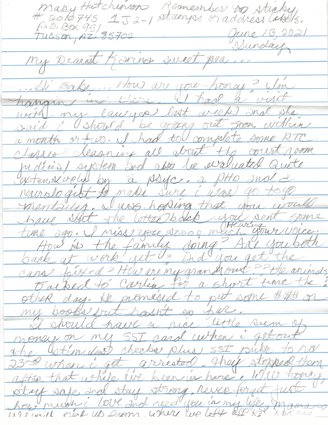 Mary Hutchinson Remember no sticky
stamps or address labels.
P.O. Box 951
Tucson, AZ. 85702
June 13, 2021
Sunday
My Dearest sweet pea...
...Hi Babe... How are you honey? I'm
hangin in here. I had a visit
with my lawyer last week and she
said I should be getting out soon within
a month or so. I had to complete some RTC
classes learning all about the court room
judicial system and also be evaluated quite
extensively by a psyc. 2 PHD and
to make sure I was go to go
I was hoping that you would
have sent the book you'd sent some
time ago. I miss you so much your voice.
How is the family doing? Are you both
back at work yet? Did you get the
cards How are my the animals
talked to for a short time the
other day. He promised to put some on
my books but hasn't so far.
I should have a nice little sum of
money on my SSI card when I get out
the stimulus checks plus SSI prior to
23rd when I got arrested. They stopped them
after that while I've been in here.
stay safe and stay strong. Never forget just
how much I love and need you in my life.
where we left off